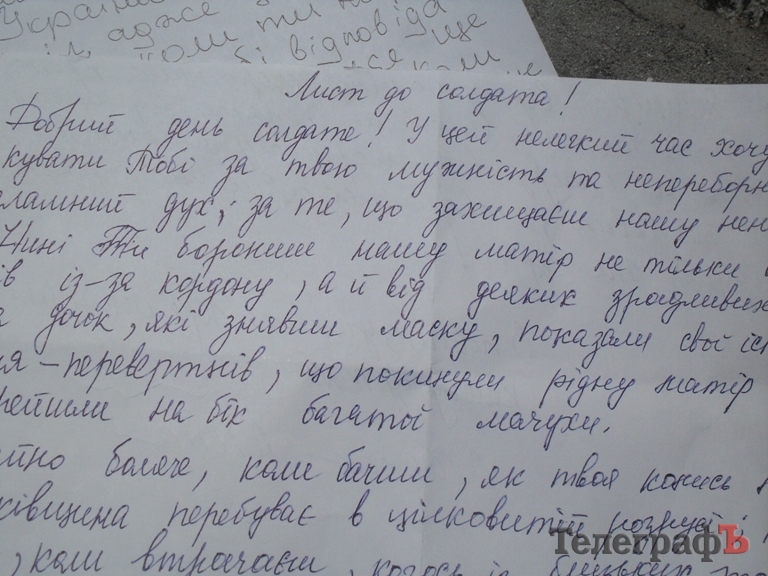 Україн
їл, адже з
коли ти на
бі відповіда
ще
Лист до солдата!
Добрий день солдате! У цей нелегкий час хочу
кувати Тобі за твою мужність та непереборн
ламний дух, за те, що захищаєш нашу нень
Нині Ти борониш нашу матір не тільки
ів із-за кордону, а й від деяких зрадливих
а дочок, які знявши маску, показали свої іс
я-перевертнів, що покинули рідну матір
рейшли на бік багатої мачухи.
йно боляче, коли бачиш, як твоя колись
ківщина перебуває в цілковитій розрусі;
, коли втрачаєш когось із близьких
ТелеграфЪ